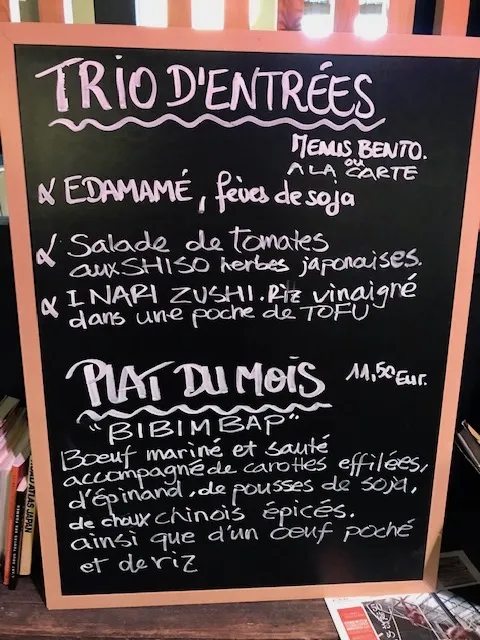 TRIO D'ENTRÉES
MENUS BENTO.
ou
A LA CARTE
EDAMAMÉ, fèves de soja
Salade de tomates
aux SHISO herbes japonaises.
INARI ZUSHI. Riz vinaigné
dans une poche de TOFU
PLAT DU MOIS
11,50 Eur.
"BIBIMBAP"
Bœuf mariné et sauté
accompagné de carottes effilées,
d'épinand, de pousses de soja,
de choux chinois épicés.
ainsi que d'un oeuf poché
et de riz